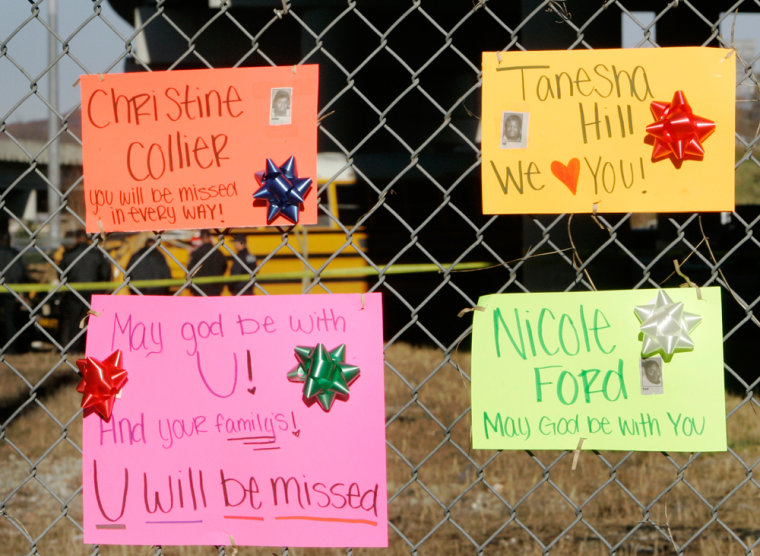 Christine
Collier
you will be missed
in every way!
Tanesha
Hill
We ❤ You!
May god be with
U!
And your family's!
U will be missed
Nicole
Ford
May God be with You